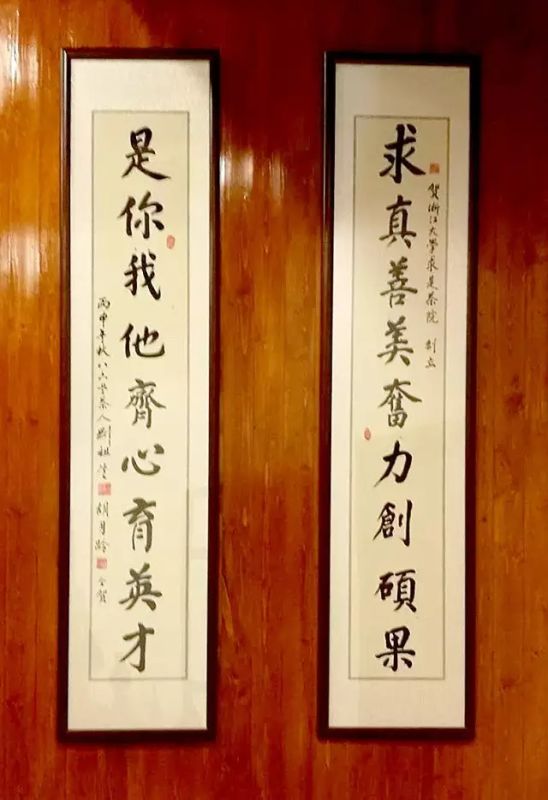 求真善美奮力創碩果
賀浙江大學求是茶院 創立
是你我他齊心育英才
丙申年秋八六叟茶人劉祖生 胡月齡 仝賀